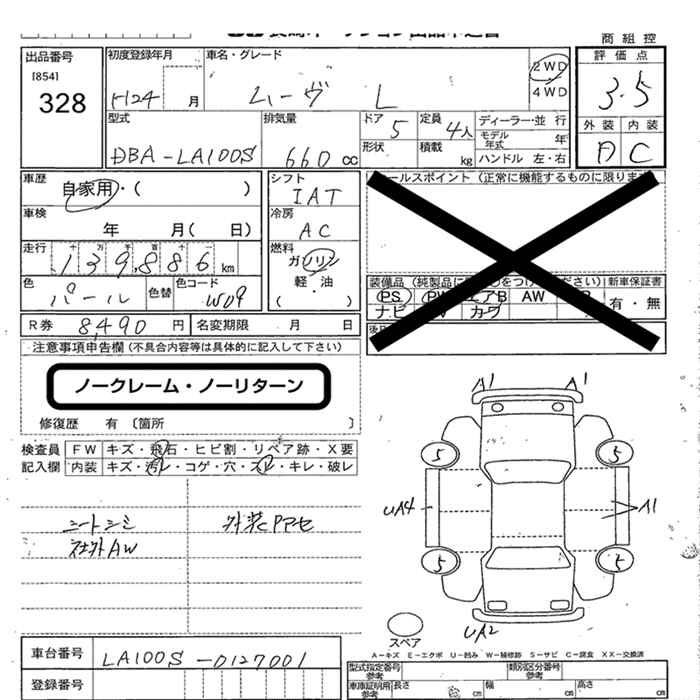 商 組 控
出品番号
[854]
328
初度登録年月
H24 月
車名・グレード
ムーヴ L
2WD
4WD
評 価 点
3.5
外 装 内 装
A C
型式
DBA-LA100S
排気量
660 cc
ドア 5
形状
定員 4人
積載 kg
ディーラー・並 行
モデル年式 年
ハンドル 左・右
車歴
自家用・( )
車検
年 月( 日)
走行
十 万 千 百 十 一
139,886 km
色
パール
色替
色コード
W09
シフト
IAT
冷房
AC
燃料
ガソリン
軽・油
( )
セールスポイント (正常に機能するものに限ります)
装備品 (純製品に○をつけてください)
新車保証書
PS PW エアB AW
ナビ カワ
有・無
R券 8,490 円
名変期限 月 日
注意事項申告欄 (不具合内容等は具体的に記入して下さい)
ノークレーム・ノーリターン
修復歴 有 〔箇所 〕
検査員
記入欄
FW キズ・飛石・ヒビ割・リペア跡・X要
内装 キズ・汚レ・コゲ・穴・スレ・キレ・破レ
シートシミ
社外AW
外装Pアセ
A1 A1
5 5
UA4 A1
5 5
UA2
スペア
A-キズ E-エクボ U-凹み W-補修跡 S-サビ C-腐食 XX-交換済
車台番号
LA100S-0127001
登録番号
型式指定番号
参考
類別区分番号
参考
車庫証明用
参考
長さ cm
幅 cm
高さ cm